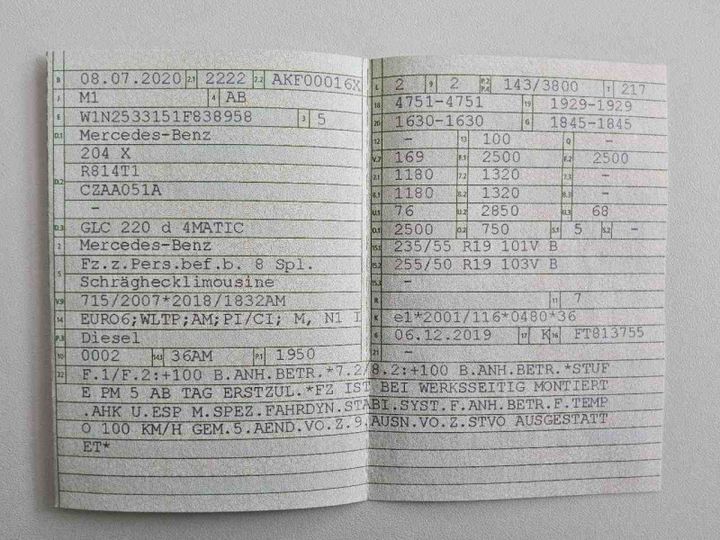 B 08.07.2020 2.1 2222 2.2 AKF00016X
J M1 4 AB
E W1N2533151F838958 3 5
D.1 Mercedes-Benz
204 X
D.2 R814T1
CZAA051A
–
D.3 GLC 220 d 4MATIC
2 Mercedes-Benz
5 Fz.z.Pers.bef.b. 8 Spl.
Schräghecklimousine
V.9 715/2007*2018/1832AM
14 EURO6;WLTP;AM;PI/CI; M, N1 I
P.3 Diesel
10 0002 14.1 36AM P.1 1950
L 2 9 2 P.2 P.4 143/3800 T 217
18 4751-4751 19 1929-1929
20 1630-1630 G 1845-1845
12 – 13 100 Q –
V.7 169 F.1 2500 F.2 2500
7.1 1180 7.2 1320 7.3 –
8.1 1180 8.2 1320 8.3 –
U.1 76 U.2 2850 U.3 68
O.1 2500 O.2 750 S.1 5 S.2 –
15.1 235/55 R19 101V B
15.2 255/50 R19 103V B
15.3 –
R 11 7
K e1*2001/116*0480*36
6 06.12.2019 17 K 16 FT813755
21 –
22 F.1/F.2:+100 B.ANH.BETR.*7.2/8.2:+100 B.ANH.BETR.*STUF
E PM 5 AB TAG ERSTZUL.*FZ IST BEI WERKSSEITIG MONTIERT
.AHK U.ESP M.SPEZ.FAHRDYN.STABI.SYST.F.ANH.BETR.F.TEMP
O 100 KM/H GEM.5.AEND.VO.Z.9.AUSN.VO.Z.STVO AUSGESTATT
ET*